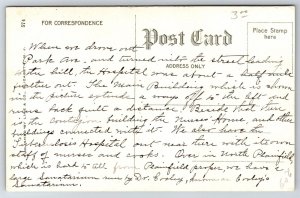 374
FOR CORRESPONDENCE
Post Card
ADDRESS ONLY
Place Stamp
here
3.00
When we drove out
Park Ave., and turned into the street leading
to the hill, the Hospital was about a half mile
further out. The Main Building which is shown
in the picture and a ways off to the left and
was back quite a distance. Beside that there
is the contagion building the Nurses Home, and other
buildings connected with it. We also have the
Tuberculosis Hospital out near there with its own
staff of nurses and cooks. Over in North Plainfield
which is hard to tell from Plainfield proper, we have a
large Sanatarium run by Dr.
Sanatarium.